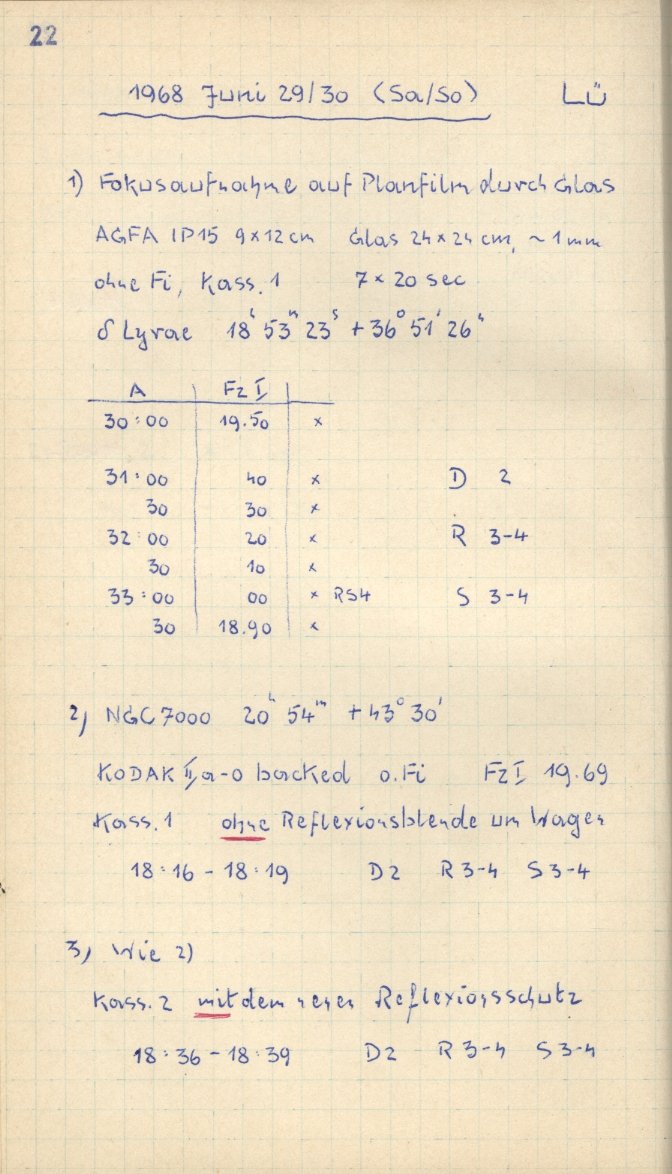 22
1968 Juni 29/30 (Sa/So) LÜ
1) Fokusaufnahme auf Planfilm durch Glas
AGFA IP15 9×12 cm Glas 24×24 cm, ~1mm
ohne Fi, Kass. 1 7×20 sec
δ Lyrae 18ʰ 53ᵐ 23ˢ +36° 51' 26"
A FzI
30:00 19.50 ×
31:00 40 × D 2
30 30 ×
32:00 20 × R 3-4
30 10 ×
33:00 00 × RS4 S 3-4
30 18.90 ×
2) NGC7000 20ʰ 54ᵐ +43° 30'
KODAK IIa-O backed o.Fi FzI 19.69
Kass. 1 ohne Reflexionsblende um Wagen
18:16 - 18:19 D2 R3-4 S3-4
3) Wie 2)
Kass. 2 mit dem neuen Reflexionsschutz
18:36 - 18:39 D2 R3-4 S3-4